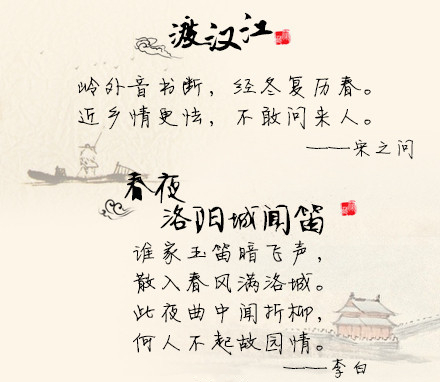 渡汉江
岭外音书断，经冬复历春。
近乡情更怯，不敢问来人。
——宋之问
春夜
洛阳城闻笛
谁家玉笛暗飞声，
散入春风满洛城。
此夜曲中闻折柳，
何人不起故园情。
——李白